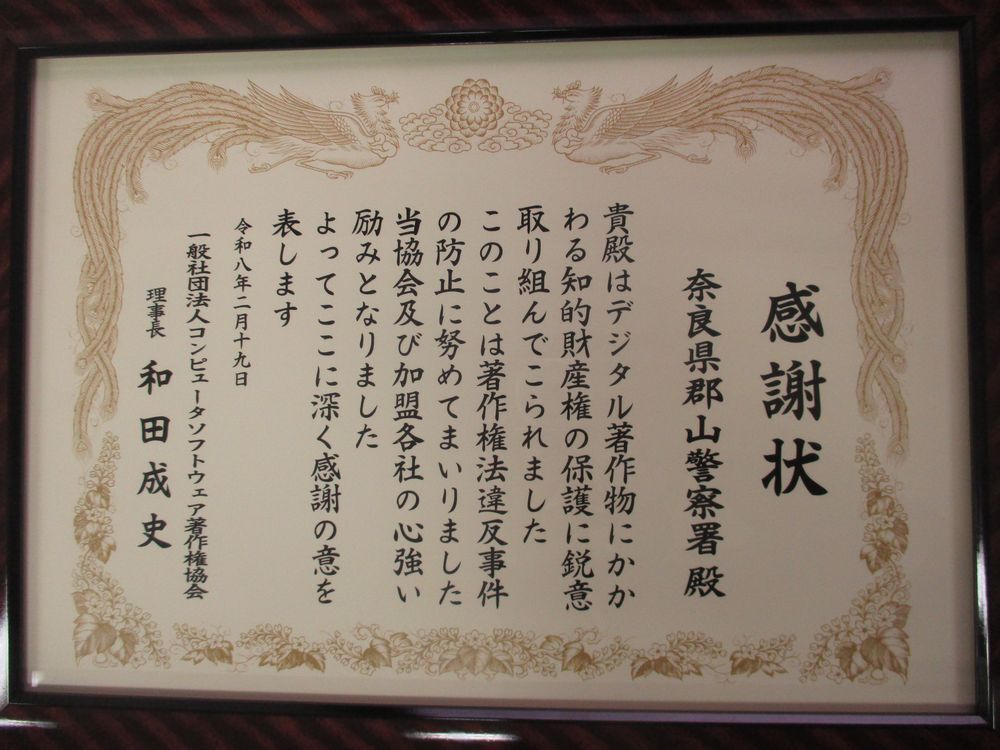 感謝状
奈良県郡山警察署 殿
貴殿はデジタル著作物にかか
わる知的財産権の保護に鋭意
取り組んでこられました
このことは著作権法違反事件
の防止に努めてまいりました
当協会及び加盟各社の心強い
励みとなりました
よってここに深く感謝の意を
表します
令和八年二月十九日
一般社団法人コンピュータソフトウェア著作権協会
理事長 和田成史